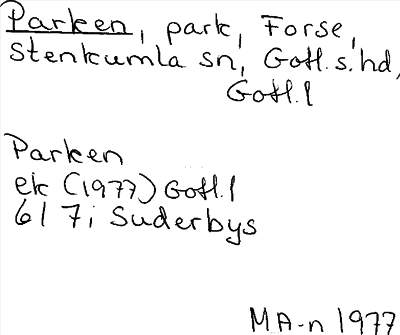 Parken, park, Forse,
Stenkumla sn, Gotl. s. hd,
Gotl. l
Parken
ek (1977) Gotl. l
6I 7i Suderbys
MA-n 1977